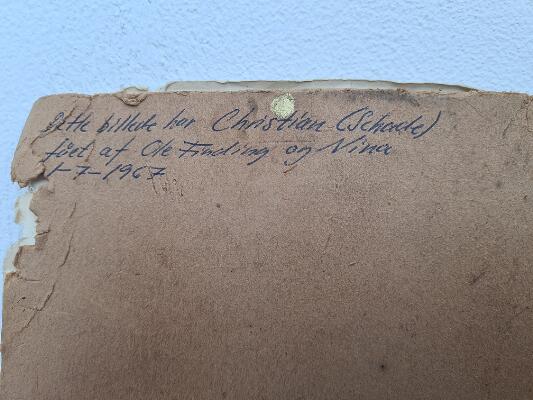 Dette billede har Christian (Schade)
fået af Ole Finding og Nina
1-7-1967